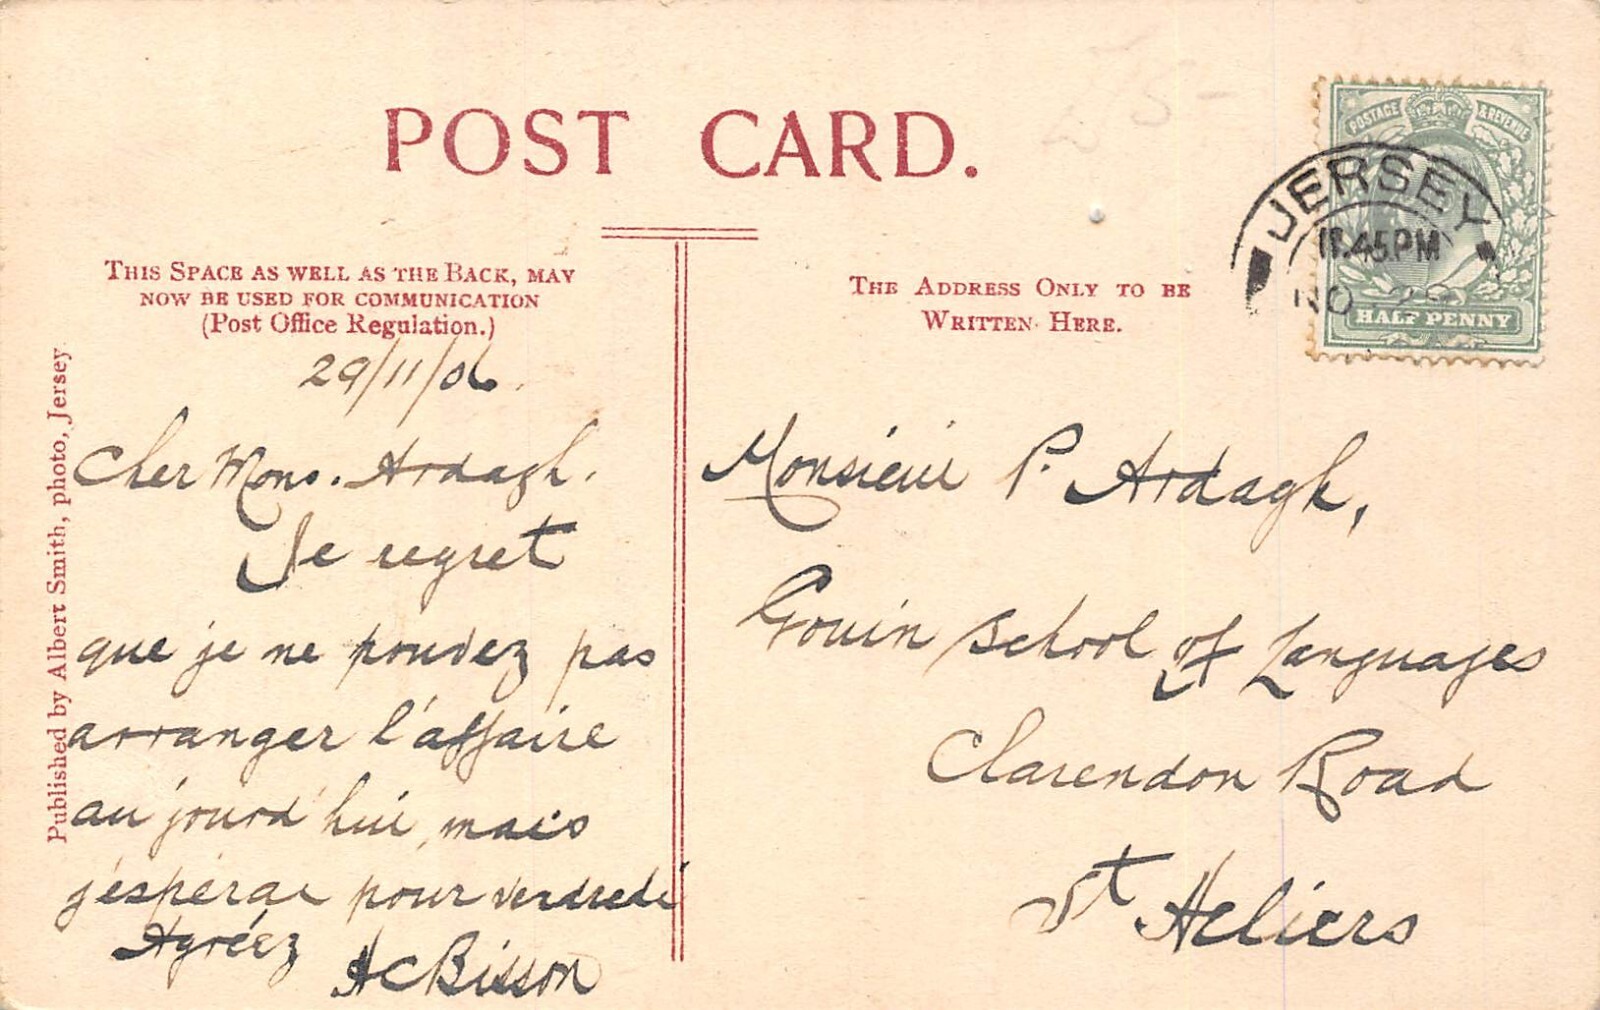 POST CARD.
THIS SPACE AS WELL AS THE BACK, MAY
NOW BE USED FOR COMMUNICATION
(Post Office Regulation.)
THE ADDRESS ONLY TO BE
WRITTEN HERE.
POSTAGE & REVENUE
HALF PENNY
JERSEY
11.45PM
NO 29
Published by Albert Smith, photo, Jersey
29/11/06.
Cher Mons. Ardagh.
Je regret
que je ne pouvez pas
arranger l'affaire
au jourd'hui, mais
j'espérai pour vendredi
Agréez
ACBisson
Monsieur P. Ardagh,
Gouin School of Languages
Clarendon Road
St Heliers